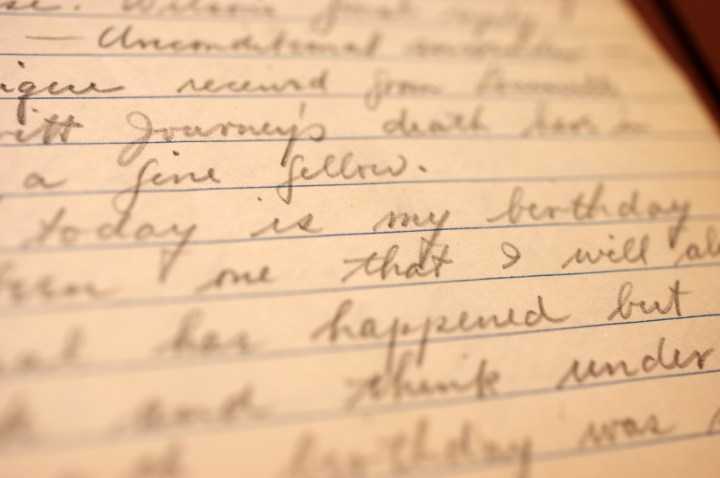 se. Wilson's final reply
— Unconditional surrender
ique received from
itt Journey's death
a fine fellow.
today is my birthday
been one that I will al
al has happened but
and think under
birthday was